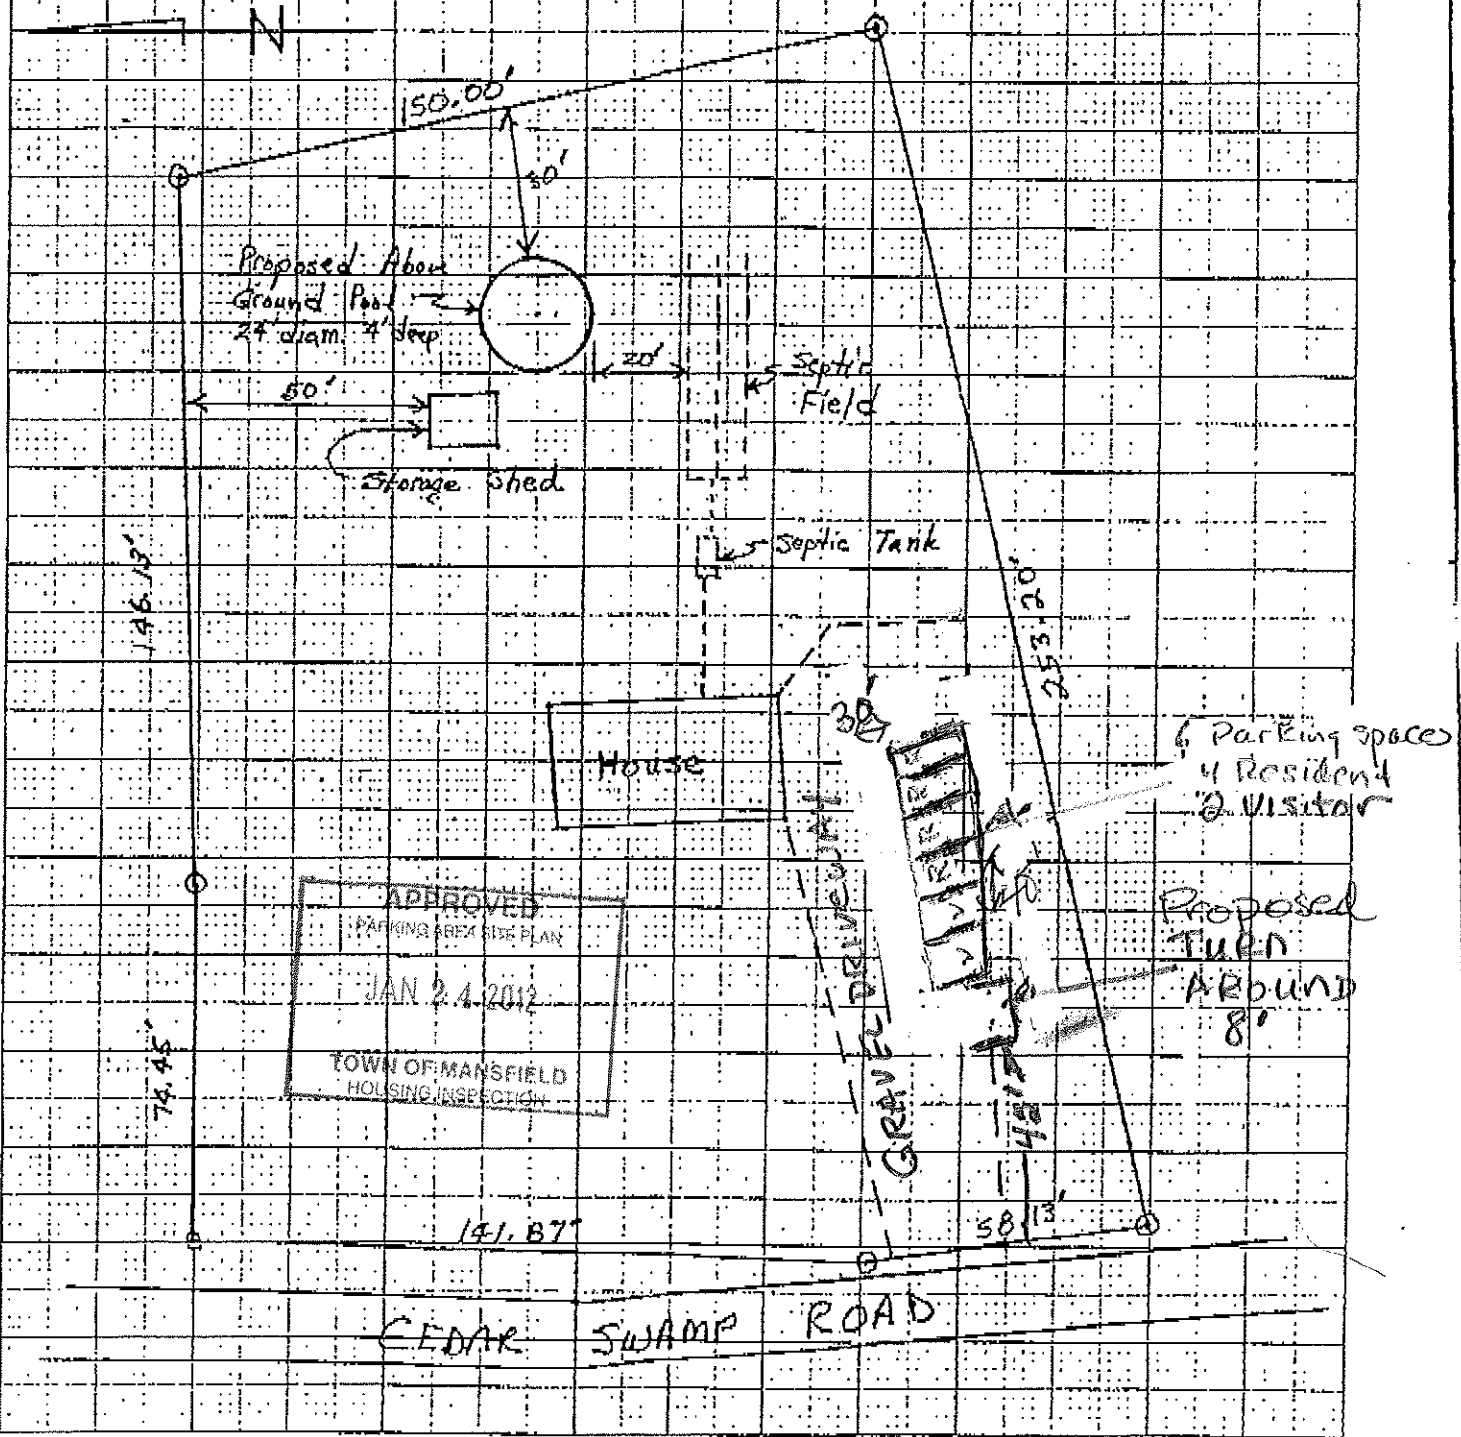 N
150.00'
30'
Proposed Above
Ground Pool
24' diam. 4' deep
20'
Septic
Field
50'
Storage Shed
Septic Tank
146.13'
253.20'
House
6 Parking spaces
4 Resident
2 Visitor
R
R
R
R
V
V
GRAVEL DRIVEWAY
Proposed
TURN
AROUND
8'
APPROVED
PARKING AREA SITE PLAN
JAN 24 2012
TOWN OF MANSFIELD
HOUSING INSPECTION
74.45'
141.87'
58.13'
CEDAR SWAMP ROAD